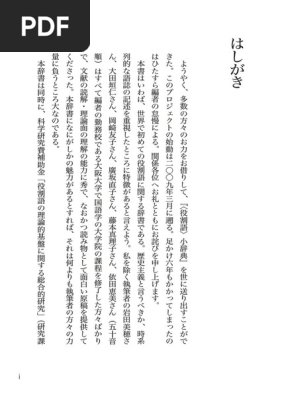 PDF
はしがき
ようやく、多数の方々のお力をお借りして、『〈役割語〉小辞典』を世に送り出すことがで
きた。このプロジェクトの始動は二〇〇九年三月に遡る。足かけ六年もかかってしまったの
はひたすら編者の怠慢による。関係各位へお礼とともにお詫びを申し上げます。
本書はいわば、世界で初めての役割語に関する辞書である。歴史主義と言うべきか、時系
列的な語誌の記述を重視したところに特徴があると言えよう。私を除く執筆者の岩田美穂さ
ん、大田垣仁さん、岡﨑友子さん、廣坂直子さん、藤本真理子さん、依田恵美さん（五十音
順）はすべて編者の勤務校である大阪大学で国語学の大学院の課程を修了した方々ばかり
で、文献の読解・理論面の理解の能力に秀で、なおかつ読み物として面白い原稿を提供して
くださった。本辞書になにがしかの魅力があるとすれば、それは何よりも執筆者の方々の力
量に負うところ大なのである。
本辞書は同時に、科学研究費補助金「役割語の理論的基盤に関する総合的研究」（研究課
i